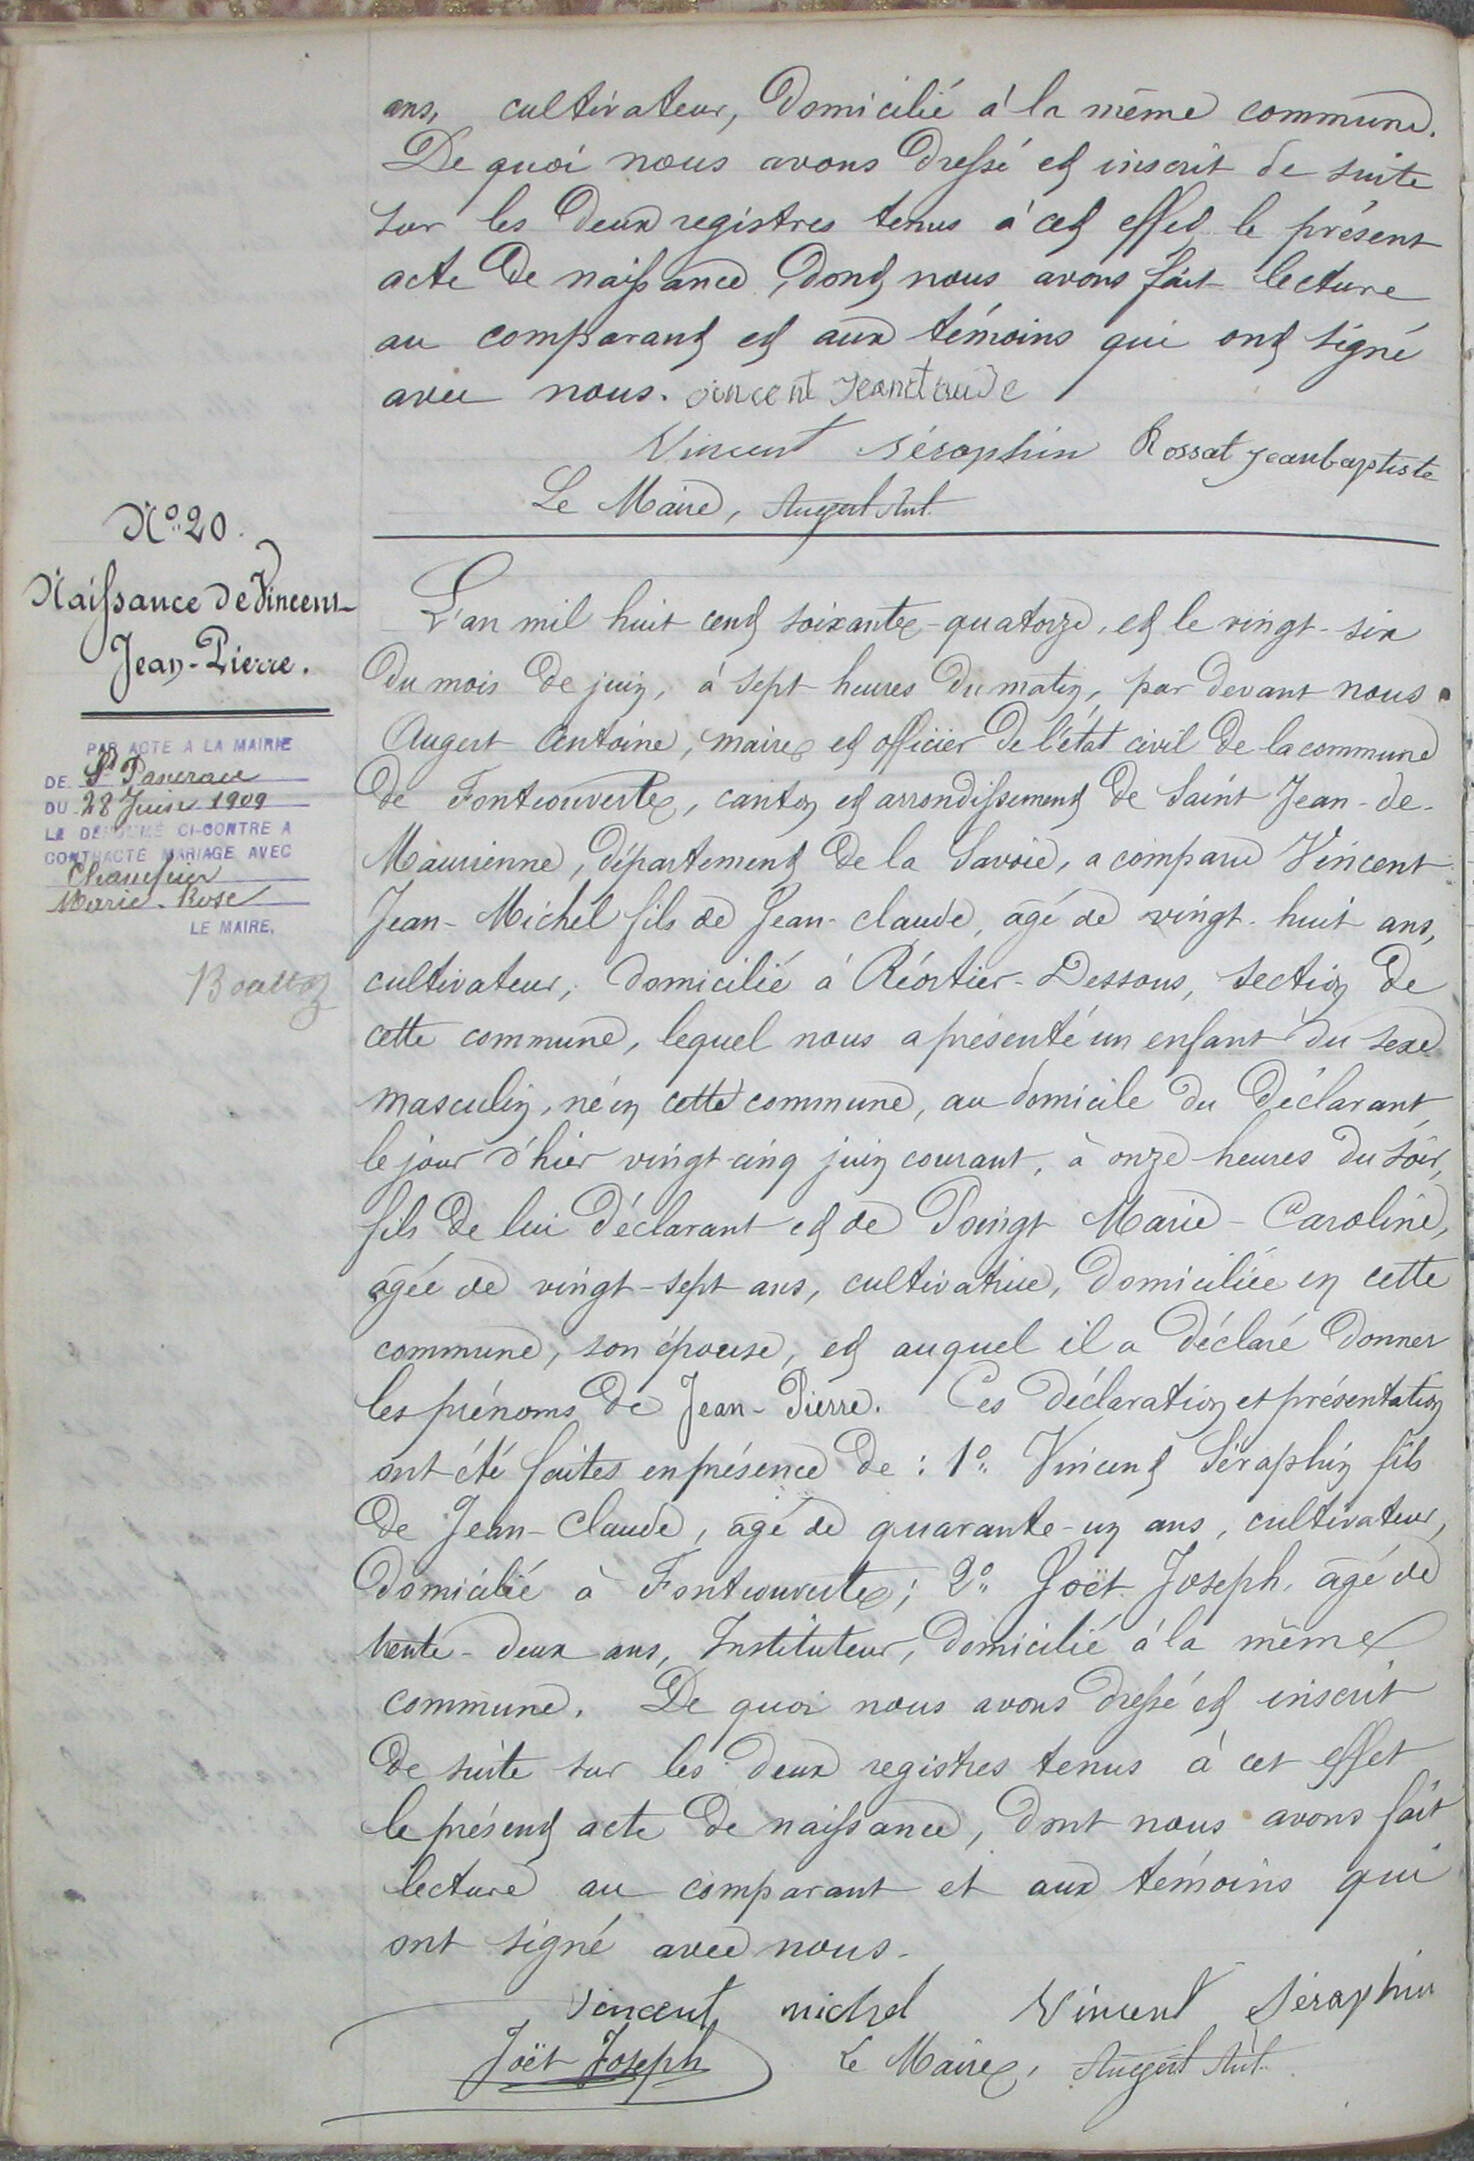 ans, cultivateur, domicilié à la même commune.
De quoi nous avons dressé et inscrit de suite
sur les deux registres tenus à cet effet le présent
acte de naissance, dont nous avons fait lecture
au comparant et aux témoins qui ont signé
avec nous. vincent Jeanclaude
Vincent Séraphin Rossat jeanbaptiste
Le Maire, Augert Ant.
N° 20.
Naissance de Vincent
Jean-Pierre.
PAR ACTE A LA MAIRIE
DE St Pancrace
DU 28 Juin 1909
LE DÉNOMMÉ CI-CONTRE A
CONTRACTÉ MARIAGE AVEC
Marie-Rose
LE MAIRE,
L'an mil huit cent soixante-quatorze, et le vingt-six
du mois de juin, à sept heures du matin, par devant nous
Augert Antoine, maire et officier de l'état civil de la commune
de Fontcouverte, canton et arrondissement de Saint Jean-de-
Maurienne, département de la Savoie, a comparu Vincent
Jean-Michel fils de Jean-claude, âgé de vingt-huit ans,
cultivateur, domicilié à Réortier-Dessous, section de
cette commune, lequel nous a présenté un enfant du sexe
masculin, né en cette commune, au domicile du déclarant,
le jour d'hier vingt-cinq juin courant, à onze heures du soir,
fils de lui déclarant et de Poingt Marie-Caroline,
âgée de vingt-sept ans, cultivatrice, domiciliée en cette
commune, son épouse, et auquel il a déclaré donner
les prénoms de Jean-Pierre. Ces déclaration et présentation
ont été faites en présence de : 1° Vincent Séraphin fils
de Jean-Claude, âgé de quarante-un ans, cultivateur,
domicilié à Fontcouverte; 2° Joët Joseph, âgé de
trente-deux ans, Instituteur, domicilié à la même
commune. De quoi nous avons dressé et inscrit
de suite sur les deux registres tenus à cet effet
le présent acte de naissance, dont nous avons fait
lecture au comparant et aux témoins qui
ont signé avec nous.
Vincent michel Vincent Séraphin
Joët Joseph Le Maire, Augert Ant.